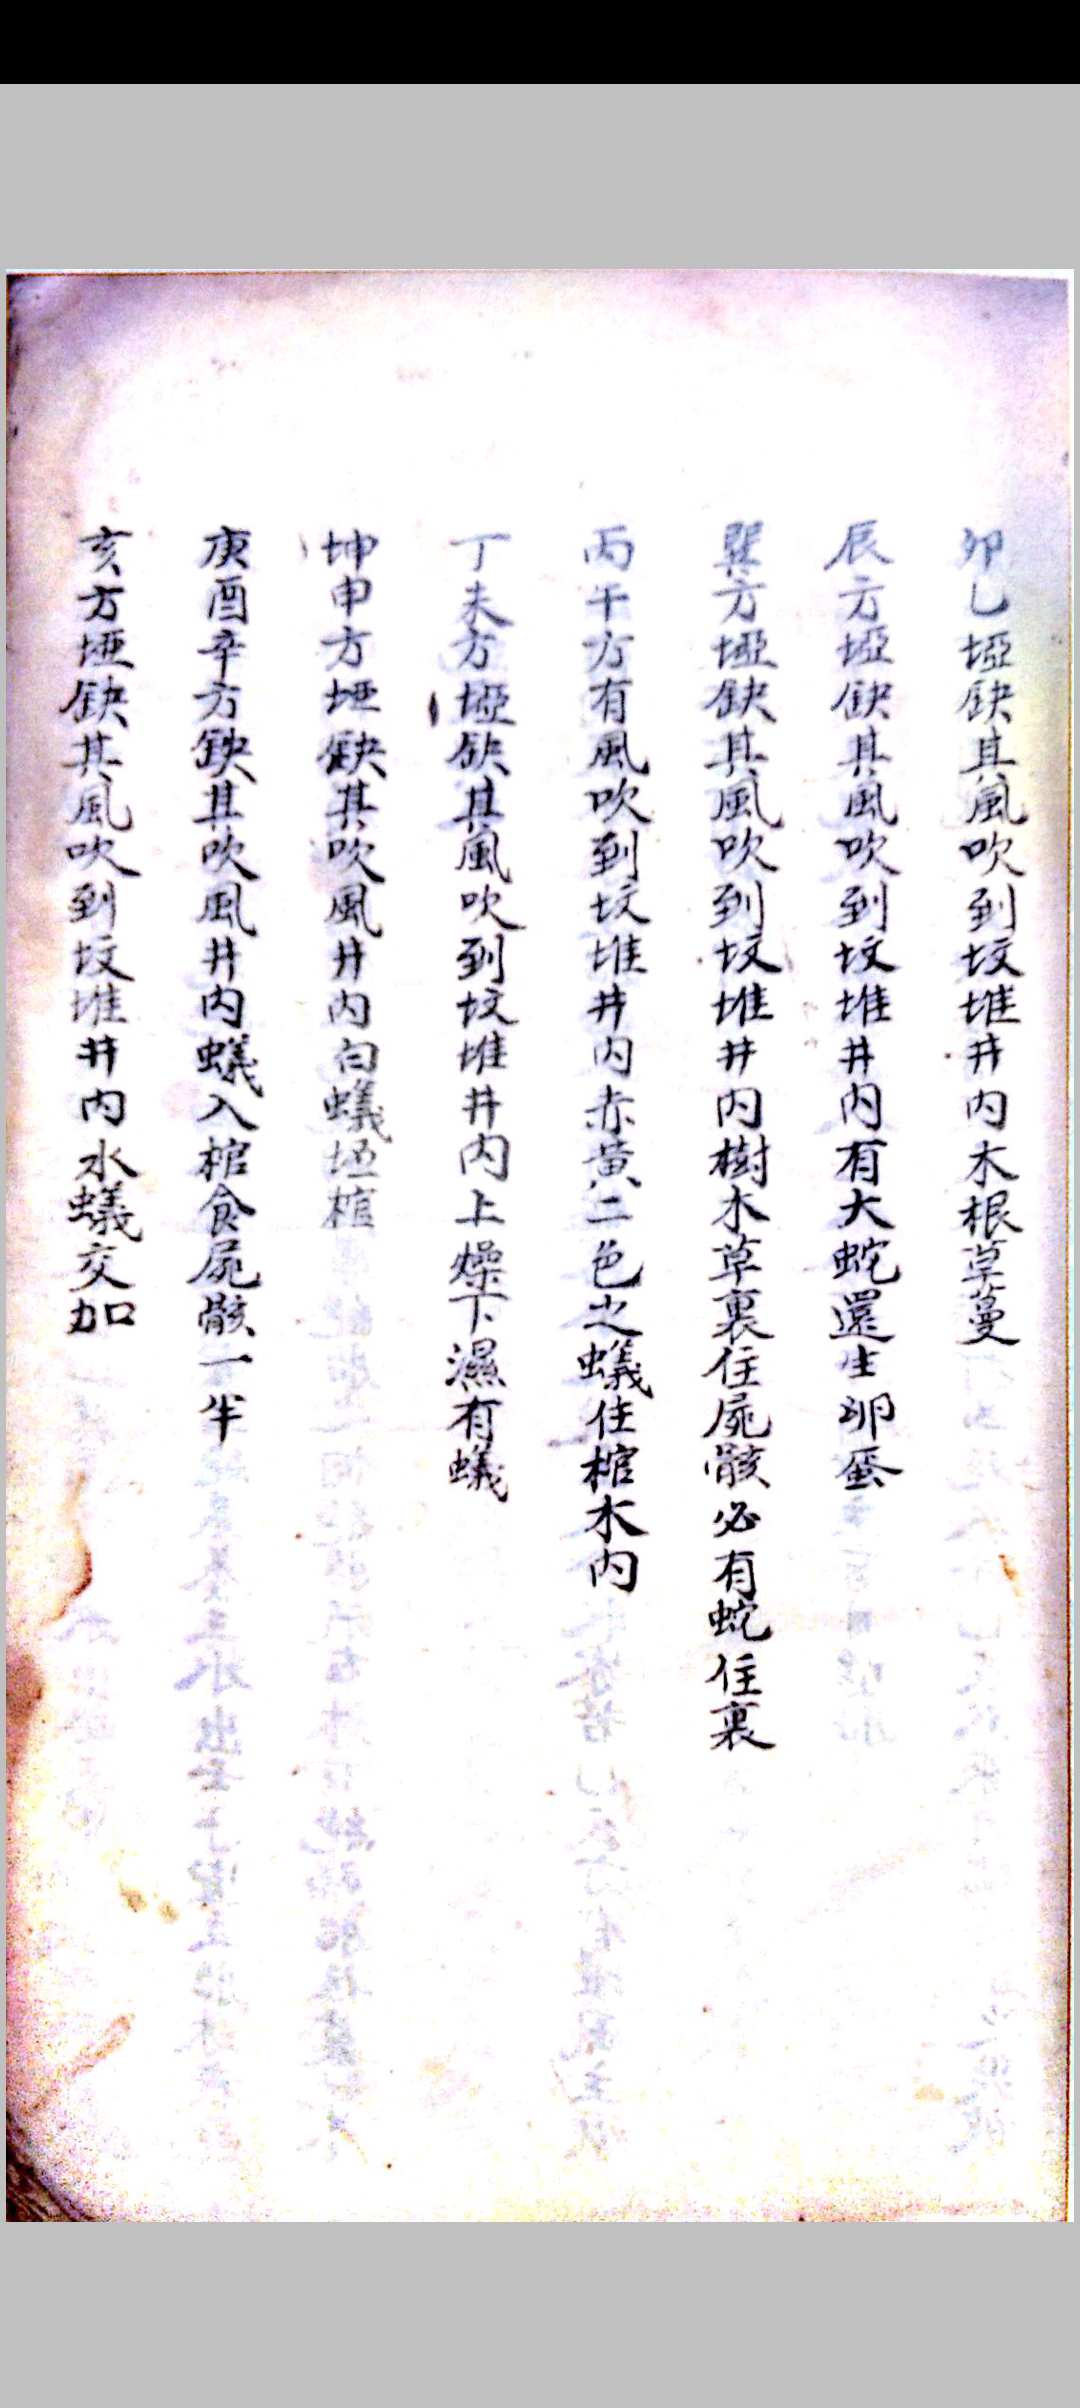 卯乙埡缺其風吹到坟堆井内木根草蔓
辰方埡缺其風吹到坟堆井内有大蛇還生卵蛋
巽方埡缺其風吹到坟堆井内樹木草裏住屍骸必有蛇住裏
丙午方有風吹到坟堆井内赤黄二色之蟻住棺木内
丁未方埡缺其風吹到坟堆井内上燥下濕有蟻
坤申方埡缺其吹風井内白蟻
庚酉辛方缺其吹風井内蟻入棺食屍骸一半
亥方埡缺其風吹到坟堆井内水蟻交加